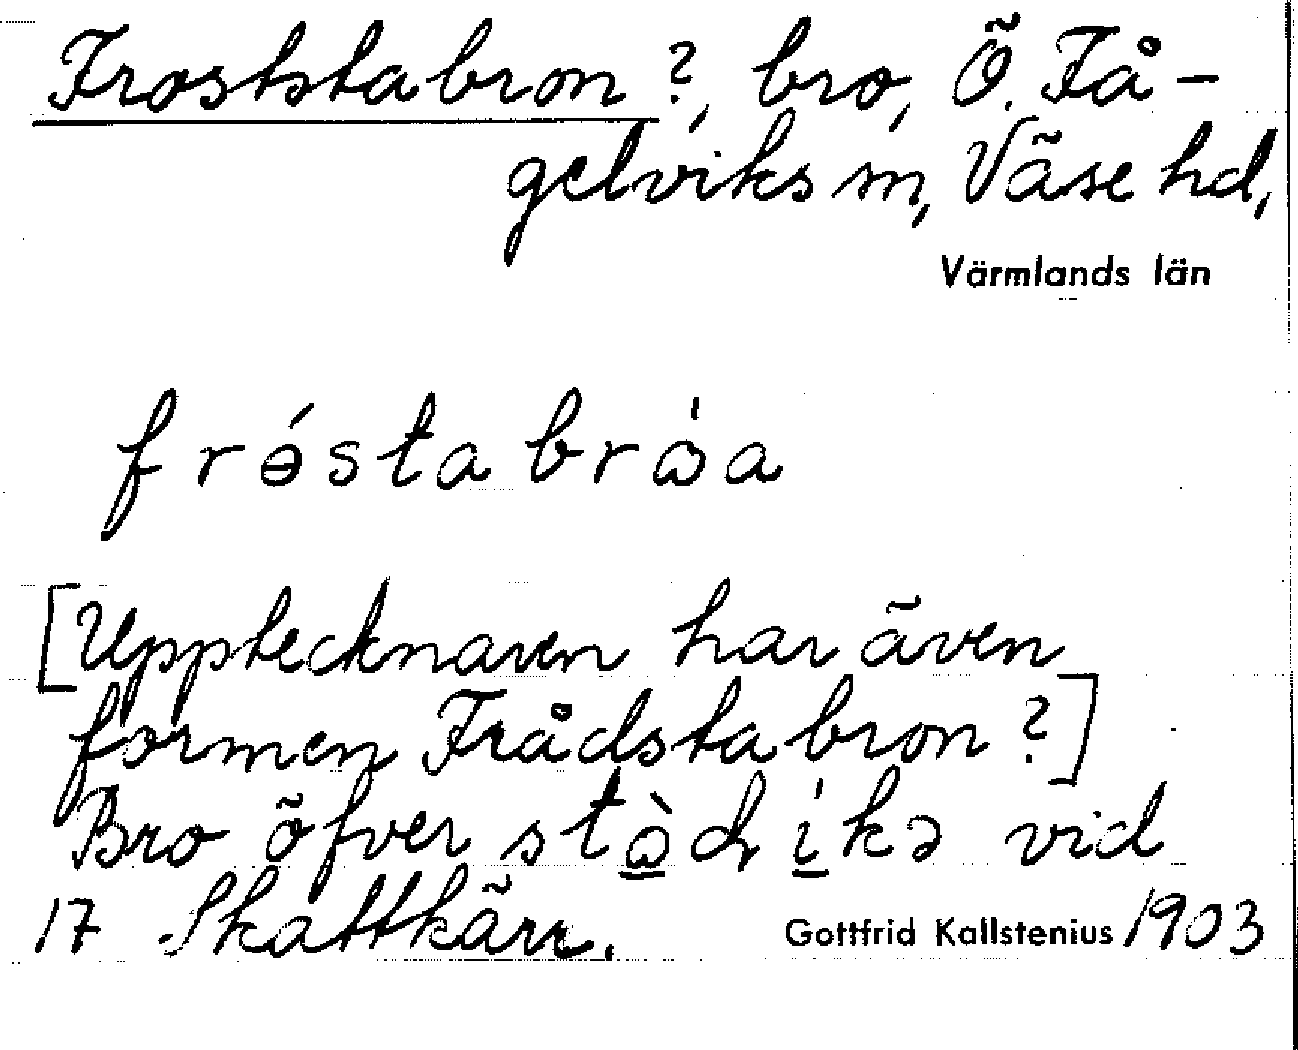 Froststabron?, bro, Ö. Få-
gelviks sn, Väse hd,
Värmlands län
frǿstabrὼa
[Upptecknaren har även
formen Frådstabron?]
Bro öfver vid
17 Skattkärr. Gottfrid Kallstenius 1903